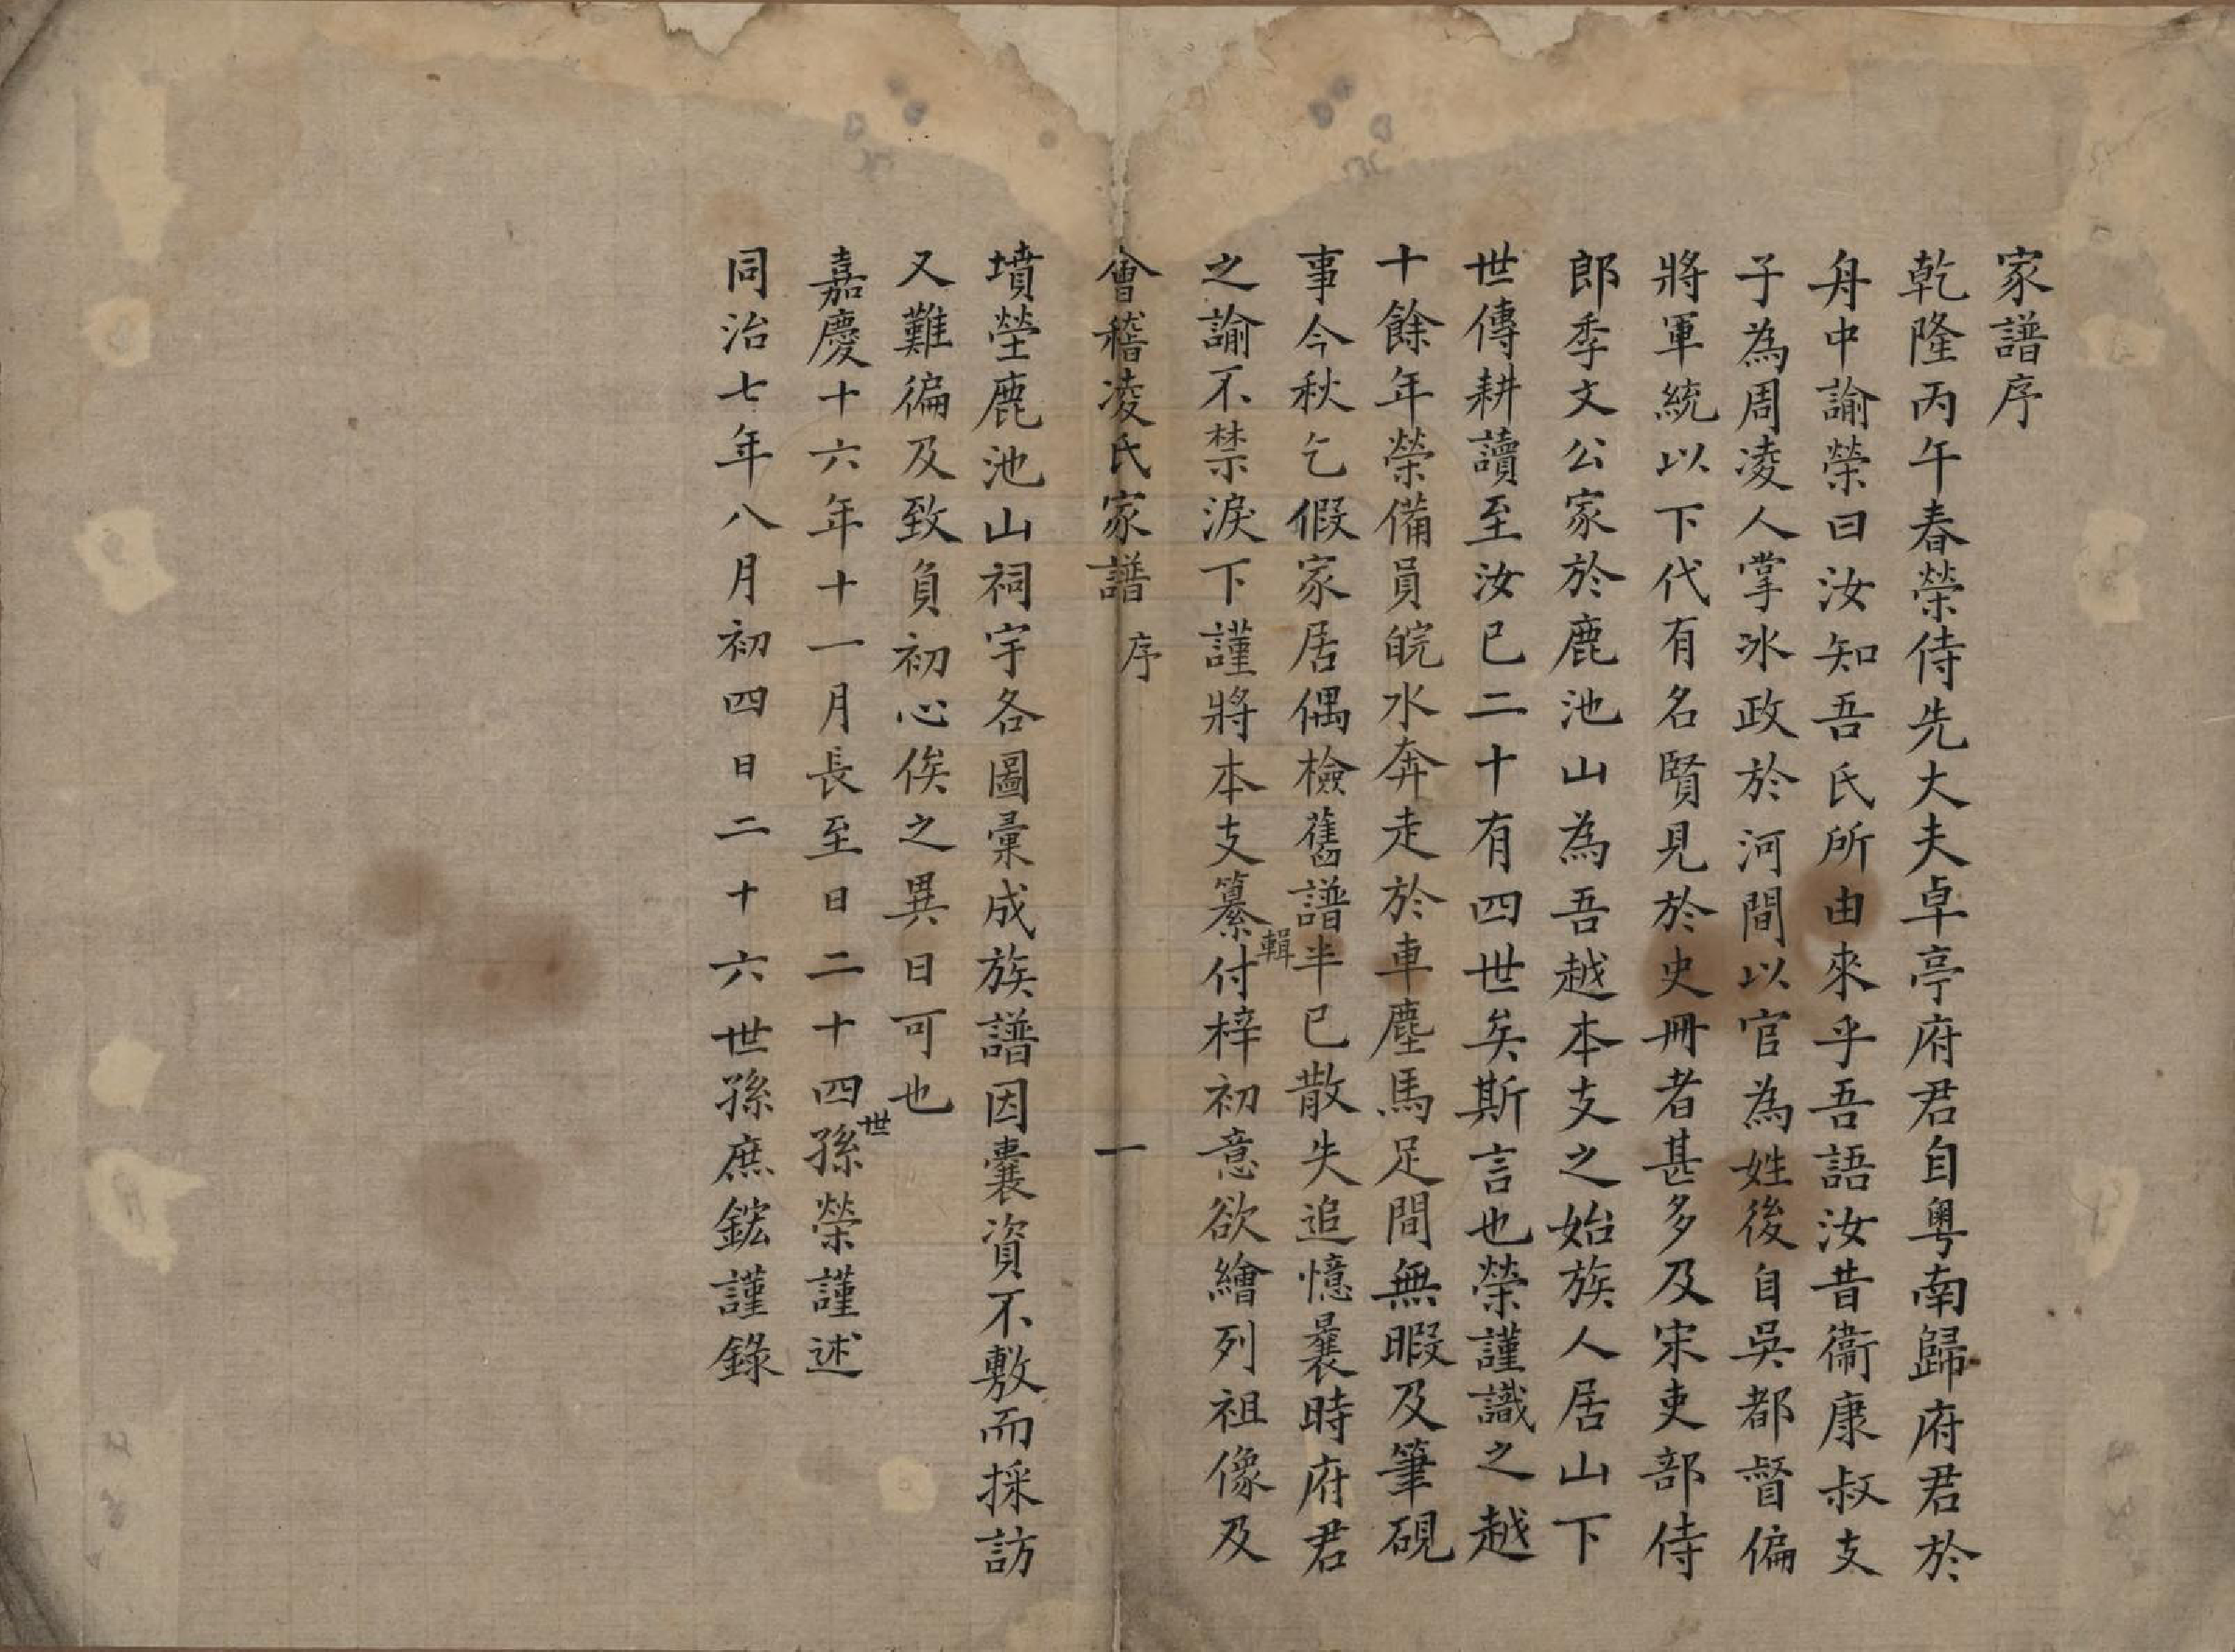 家譜序
乾隆丙午春榮侍先大夫卓亭府君自粵南歸府君於
舟中諭榮曰汝知吾氏所由來乎吾語汝昔衞康叔支
子為周凌人掌冰政於河間以官為姓後自吳都督偏
將軍統以下代有名賢見於史冊者甚多及宋吏部侍
郎季文公家於鹿池山為吾越本支之始族人居山下
世傳耕讀至汝已二十有四世矣斯言也榮謹識之越
十餘年榮備員皖水奔走於車塵馬足間無暇及筆硯
事今秋乞假家居偶檢舊譜半已散失追憶曩時府君
之諭不禁淚下謹將本支纂輯付梓初意欲繪列祖像及
會稽凌氏家譜 序 一
墳塋鹿池山祠宇各圖彙成族譜因囊資不敷而採訪
又難徧及致負初心俟之異日可也
嘉慶十六年十一月長至日二十四世孫榮謹述
同治七年八月初四日二十六世孫庶鋐謹錄